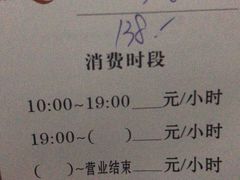 138.
消费时段
10:00~19:00___元/小时
19:00~(  )___元/小时
(  )~营业结束___元/小时